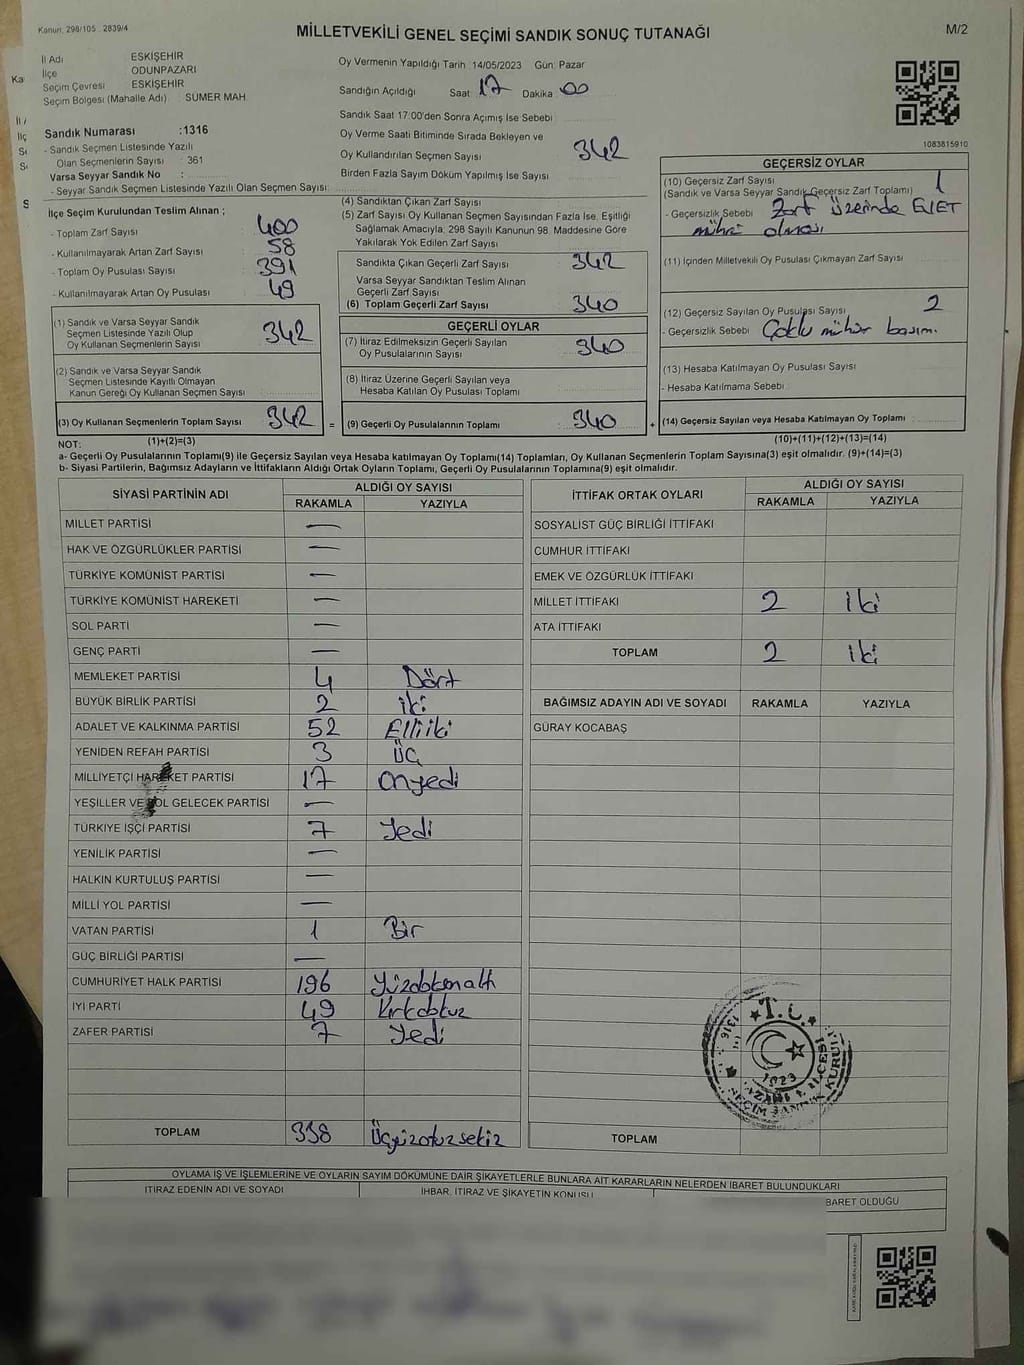 Kanun: 298/105 . 2839/4
MİLLETVEKİLİ GENEL SEÇİMİ SANDIK SONUÇ TUTANAĞI
M/2
İl Adı ESKİŞEHİR
İlçe ODUNPAZARI
Seçim Çevresi ESKİŞEHİR
Seçim Bölgesi (Mahalle Adı) : SÜMER MAH.
Oy Vermenin Yapıldığı Tarih :14/05/2023 Gün: Pazar
Sandığın Açıldığı Saat: 17 Dakika : 00
Sandık Saat 17:00'den Sonra Açımış İse Sebebi :
Oy Verme Saati Bitiminde Sırada Bekleyen ve
Oy Kullandırılan Seçmen Sayısı : 342
Birden Fazla Sayım Döküm Yapılmış İse Sayısı :
Sandık Numarası :1316
- Sandık Seçmen Listesinde Yazılı
Olan Seçmenlerin Sayısı : 361
Varsa Seyyar Sandık No :
- Seyyar Sandık Seçmen Listesinde Yazılı Olan Seçmen Sayısı:
1083815910
İlçe Seçim Kurulundan Teslim Alınan ;
- Toplam Zarf Sayısı : 400
- Kullanılmayarak Artan Zarf Sayısı : 58
- Toplam Oy Pusulası Sayısı : 391
- Kullanılmayarak Artan Oy Pusulası : 49
(1) Sandık ve Varsa Seyyar Sandık
Seçmen Listesinde Yazılı Olup
Oy Kullanan Seçmenlerin Sayısı : 342
(2) Sandık ve Varsa Seyyar Sandık
Seçmen Listesinde Kayıtlı Olmayan
Kanun Gereği Oy Kullanan Seçmen Sayısı :
(3) Oy Kullanan Seçmenlerin Toplam Sayısı : 342
(4) Sandıktan Çıkan Zarf Sayısı :
(5) Zarf Sayısı Oy Kullanan Seçmen Sayısından Fazla İse, Eşitliği
Sağlamak Amacıyla; 298 Sayılı Kanunun 98. Maddesine Göre
Yakılarak Yok Edilen Zarf Sayısı :
Sandıkta Çıkan Geçerli Zarf Sayısı : 342
Varsa Seyyar Sandıktan Teslim Alınan
Geçerli Zarf Sayısı
(6) Toplam Geçerli Zarf Sayısı : 340
GEÇERLİ OYLAR
(7) İtiraz Edilmeksizin Geçerli Sayılan
Oy Pusulalarının Sayısı : 340
(8) İtiraz Üzerine Geçerli Sayılan veya
Hesaba Katılan Oy Pusulası Toplamı :
= (9) Geçerli Oy Pusulalarının Toplamı : 340
GEÇERSİZ OYLAR
(10) Geçersiz Zarf Sayısı 1
(Sandık ve Varsa Seyyar Sandık Geçersiz Zarf Toplamı) :
- Geçersizlik Sebebi : Zarf üzerinde EVET
mührü olması
(11) İçinden Milletvekili Oy Pusulası Çıkmayan Zarf Sayısı :
(12) Geçersiz Sayılan Oy Pusulası Sayısı : 2
- Geçersizlik Sebebi : Çoklu mühür basım.
(13) Hesaba Katılmayan Oy Pusulası Sayısı :
- Hesaba Katılmama Sebebi :
+ (14) Geçersiz Sayılan veya Hesaba Katılmayan Oy Toplamı :
NOT: (1)+(2)=(3)
(10)+(11)+(12)+(13)=(14)
a- Geçerli Oy Pusulalarının Toplamı(9) ile Geçersiz Sayılan veya Hesaba katılmayan Oy Toplamı(14) Toplamları, Oy Kullanan Seçmenlerin Toplam Sayısına(3) eşit olmalıdır. (9)+(14)=(3)
b- Siyasi Partilerin, Bağımsız Adayların ve İttifakların Aldığı Ortak Oyların Toplamı, Geçerli Oy Pusulalarının Toplamına(9) eşit olmalıdır.
SİYASİ PARTİNİN ADI ALDIĞI OY SAYISI
RAKAMLA YAZIYLA
MİLLET PARTİSİ —
HAK VE ÖZGÜRLÜKLER PARTİSİ —
TÜRKİYE KOMÜNİST PARTİSİ —
TÜRKİYE KOMÜNİST HAREKETİ —
SOL PARTİ —
GENÇ PARTİ —
MEMLEKET PARTİSİ 4 Dört
BÜYÜK BİRLİK PARTİSİ 2 iki
ADALET VE KALKINMA PARTİSİ 52 Elliiki
YENİDEN REFAH PARTİSİ 3 üç
MİLLİYETÇİ HAREKET PARTİSİ 17 Onyedi
YEŞİLLER VE SOL GELECEK PARTİSİ —
TÜRKİYE İŞÇİ PARTİSİ 7 Yedi
YENİLİK PARTİSİ —
HALKIN KURTULUŞ PARTİSİ —
MİLLİ YOL PARTİSİ —
VATAN PARTİSİ 1 Bir
GÜÇ BİRLİĞİ PARTİSİ —
CUMHURİYET HALK PARTİSİ 196 Yüzdoksanaltı
İYİ PARTİ 49 Kırkdokuz
ZAFER PARTİSİ 7 Yedi
TOPLAM 338 Üçyüzotuzsekiz
İTTİFAK ORTAK OYLARI ALDIĞI OY SAYISI
RAKAMLA YAZIYLA
SOSYALİST GÜÇ BİRLİĞİ İTTİFAKI
CUMHUR İTTİFAKI
EMEK VE ÖZGÜRLÜK İTTİFAKI
MİLLET İTTİFAKI 2 iki
ATA İTTİFAKI
TOPLAM 2 iki
BAĞIMSIZ ADAYIN ADI VE SOYADI RAKAMLA YAZIYLA
GÜRAY KOCABAŞ
T.C.
1316
1923
SEÇİM SANDIK KURULU
TOPLAM
OYLAMA İŞ VE İŞLEMLERİNE VE OYLARIN SAYIM DÖKÜMÜNE DAİR ŞİKAYETLERLE BUNLARA AİT KARARLARIN NELERDEN İBARET BULUNDUKLARI
İTİRAZ EDENİN ADI VE SOYADI İHBAR, İTİRAZ VE ŞİKAYETİN KONUSU BARET OLDUĞU